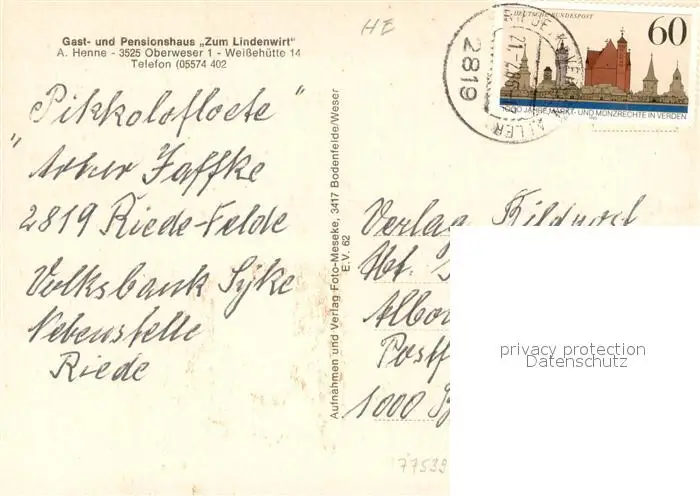 Gast- und Pensionshaus „Zum Lindenwirt"
A. Henne - 3525 Oberweser 1 - Weißehütte 14
Telefon (05574 402
HE
"Pikkolofloete"
Jaffke
2819 Riede-Felde
Volksbank Syke
Nebenstelle
Riede
Aufnahmen und Verlag Foto-Meseke, 3417 Bodenfelde/Weser
E.V. 62
2819
ALLER
DEUTSCHE BUNDESPOST
60
1000 JAHRE MARKT- UND MÜNZRECHTE IN VERDEN
Verlag
Abt.
Postf
1000
77539
privacy protection
Datenschutz